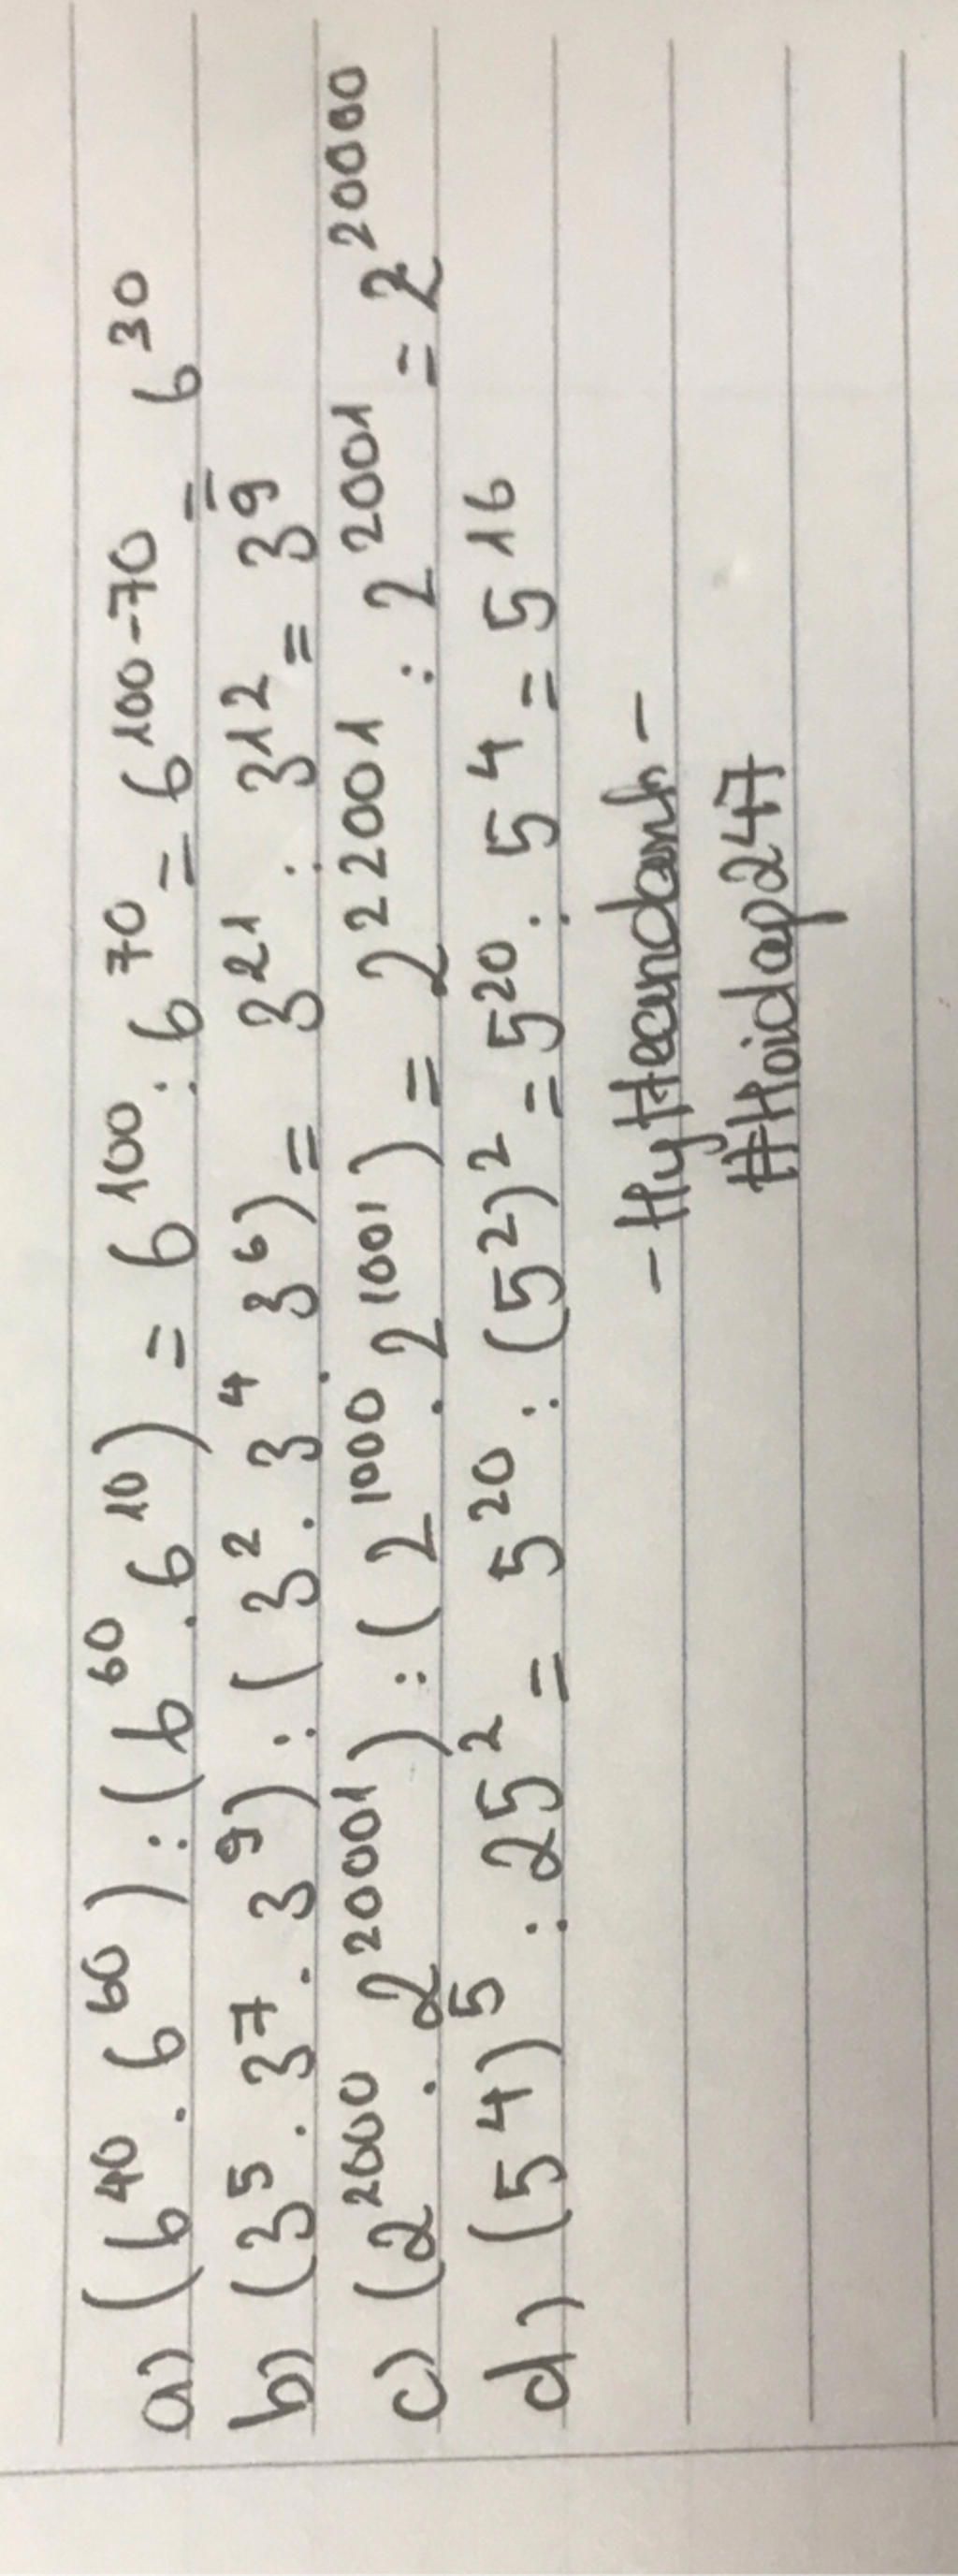 a) (6⁴⁰ . 6⁶⁰) : (6⁶⁰ . 6¹⁰) = 6¹⁰⁰ : 6⁷⁰ = 6¹⁰⁰⁻⁷⁰ = 6³⁰
b) (3⁵ . 3⁷ . 3⁹) : (3² . 3⁴ . 3⁶) = 3²¹ : 3¹² = 3⁹
c) (2²⁰⁰⁰ . 2²⁰⁰⁰¹) : (2¹⁰⁰⁰ . 2¹⁰⁰¹) = 2²²⁰⁰¹ : 2²⁰⁰¹ = 2²⁰⁰⁰⁰
d) (5⁴)⁵ : 25² = 5²⁰ : (5²)² = 5²⁰ : 5⁴ = 5¹⁶
#Hoidap247